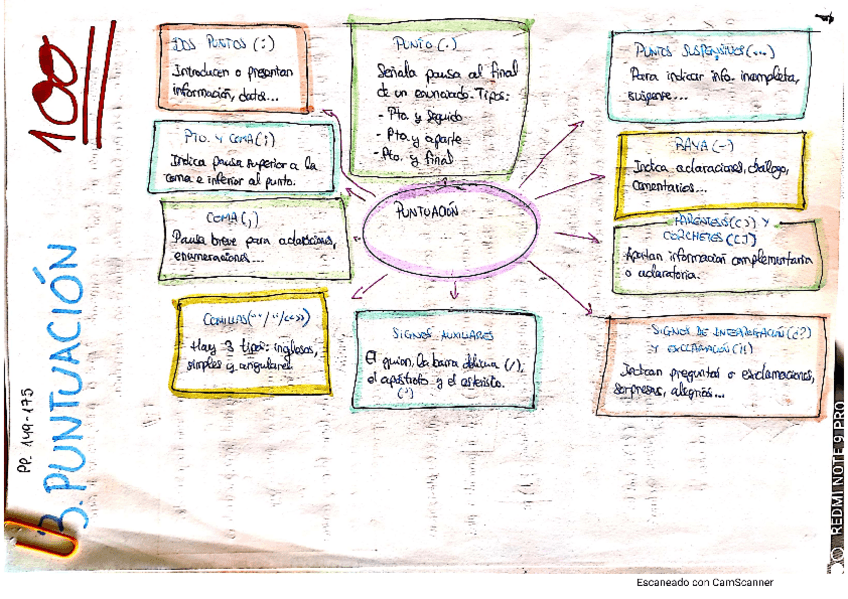 100
3. PUNTUACIÓN
PP. 149-175
DOS PUNTOS (:)
Introducen o presentan
información, datos...
PUNTO (.)
Señala pausa al final
de un enunciado. Tipos:
- Pto. y seguido
- Pto. y aparte
- Pto. y final
PUNTOS SUSPENSIVOS (...)
Para indicar info. incompleta,
suspense...
PTO. Y COMA (;)
Indica pausa superior a la
coma e inferior al punto.
RAYA (-)
Indica aclaraciones, diálogo,
comentarios...
COMA (,)
Pausa breve para aclaraciones,
enumeraciones...
PUNTUACIÓN
PARÉNTESIS ( ) Y
CORCHETES ([ ])
Aportan información complementaria
o aclaratoria.
COMILLAS (" "/' '/« »)
Hay 3 tipos: inglesas,
simples y angulares.
SIGNOS AUXILIARES
El guion, la barra oblicua (/),
el apóstrofo y el asterisco.
(')
SIGNOS DE INTERROGACIÓN (¿?)
Y EXCLAMACIÓN (¡!)
Indican preguntas o exclamaciones,
sorpresas, alegrías...
REDMI NOTE 9 PRO
Escaneado con CamScanner